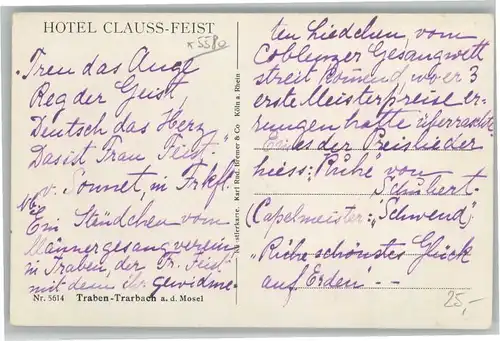 HOTEL CLAUSS-FEIST
x5580
Treu das Auge
Reg der Geist,
Deutsch das Herz,
Das ist Frau Feist.
v. Sonnet, in Frkft.
Ein Ständchen vom
Männergesangverein
in Traben, der Fr. Feist
mit dem ihr gewidme-
Nr. 5614 Traben-Trarbach a. d. Mosel
Karl Rud. Bremer & Co. Köln a. Rhein
ten Liedchen, vom
Coblenzer Gesangwett
streit kommend, wo er 3
erste Meisterpreise er-
rungen hatte überraschte
Eines der Preislieder
hiess: "Ruhe" von
Schubert
(Capelmeister: "Schwend")
"Ruhe schönstes Glück
auf Erden" - -
25,-